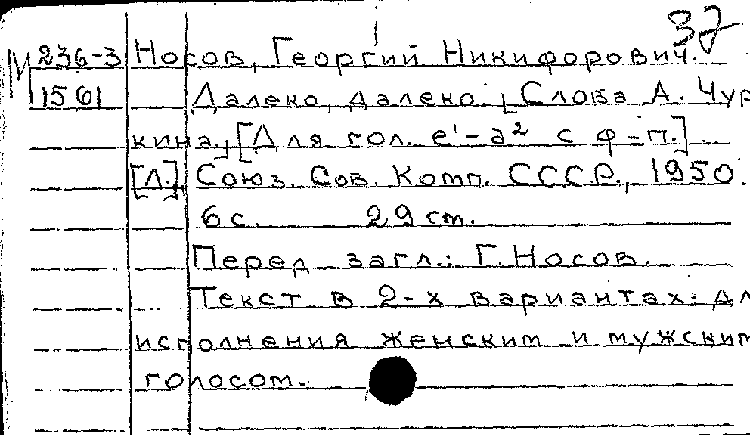 37
М 236-3 Носов, Георгий Никифорович.
1561 Далеко, далеко. [Слова А. Чур
кина.] [Для гол. e¹-a² с ф-п.]
[Л.], Союз Сов. Комп. СССР, 1950.
6 с. 29 см.
Перед загл.: Г. Носов.
Текст в 2-х вариантах: дл
исполнения женским и мужским
голосом.